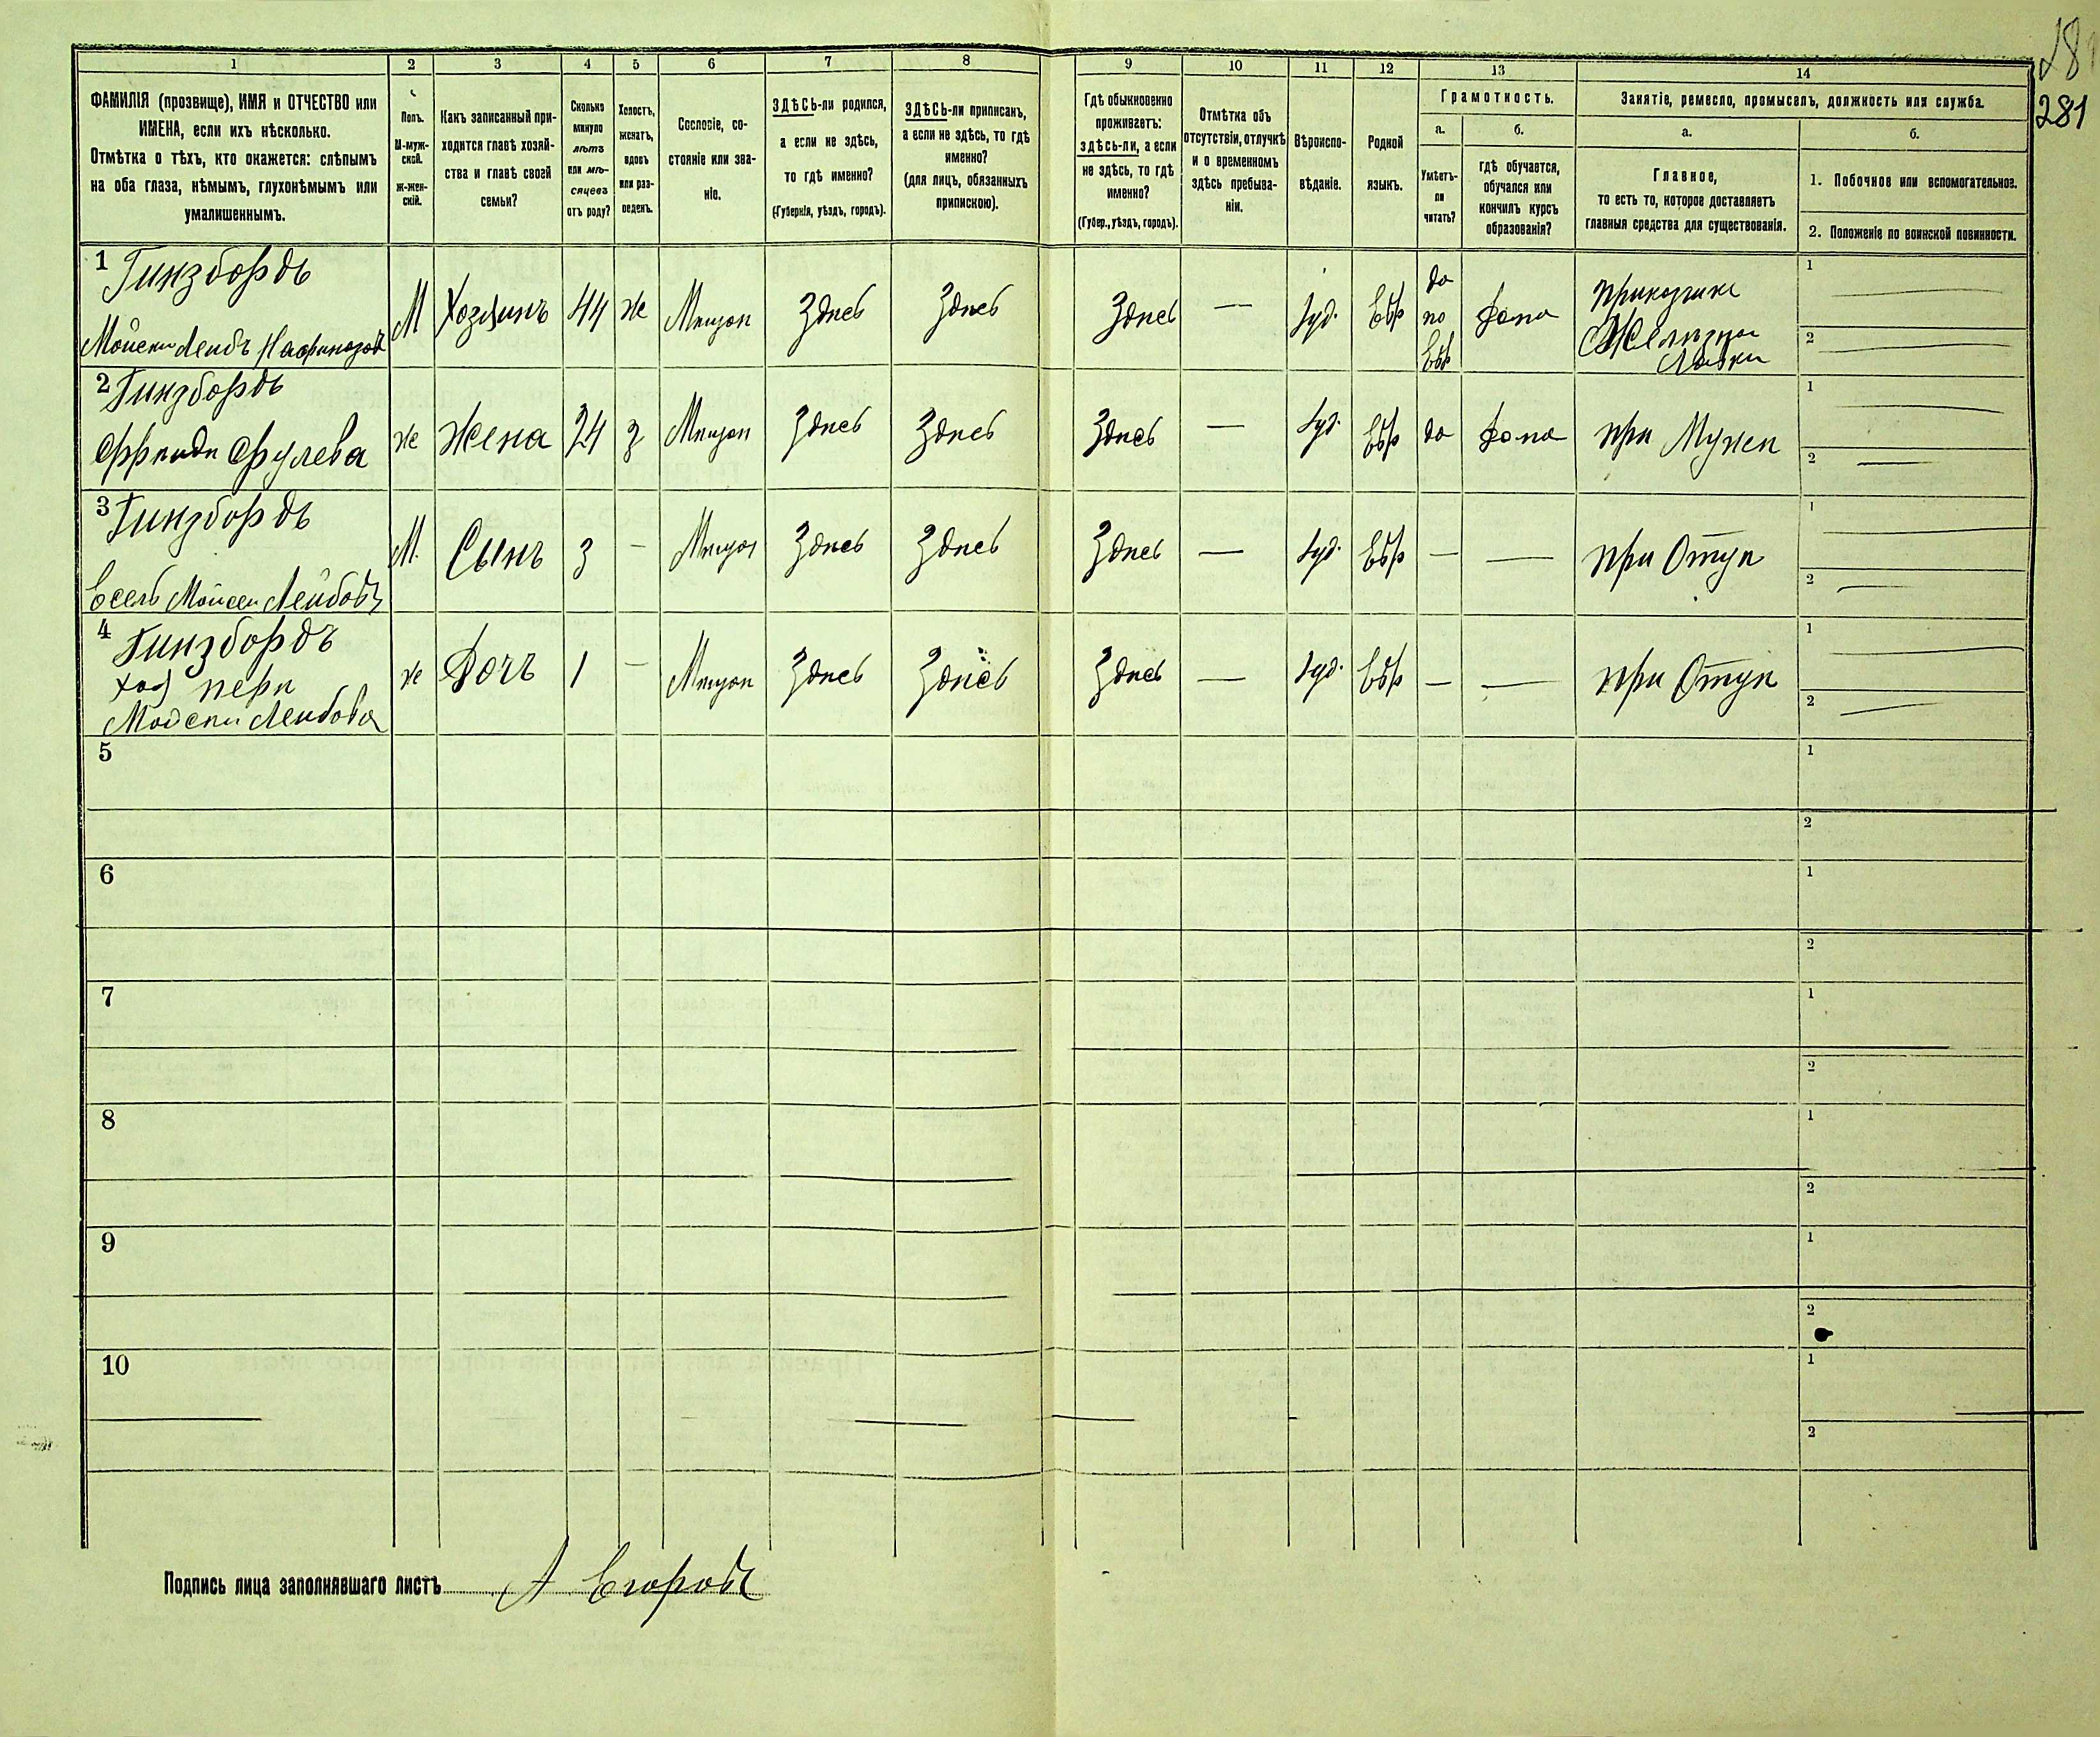 281
1 2 3 4 5 6 7 8 9 10 11 12 13 14
ФАМИЛІЯ (прозвище), ИМЯ и ОТЧЕСТВО или
ИМЕНА, если ихъ нѣсколько.
Отмѣтка о тѣхъ, кто окажется: слѣпымъ
на оба глаза, нѣмымъ, глухонѣмымъ или
умалишеннымъ.
Полъ.
М-муж-
ской.
Ж-жен-
скій.
Какъ записанный при-
ходится главѣ хозяй-
ства и главѣ своей
семьи?
Сколько
минуло
лѣтъ
или мѣ-
сяцевъ
отъ роду?
Холостъ,
женатъ,
вдовъ
или раз-
веденъ.
Сословіе, со-
стояніе или зва-
ніе.
ЗДѢСЬ-ли родился,
а если не здѣсь,
то гдѣ именно?
(Губернія, уѣздъ, городъ).
ЗДѢСЬ-ли приписанъ,
а если не здѣсь, то гдѣ
именно?
(для лицъ, обязанныхъ
припискою).
Гдѣ обыкновенно
проживаетъ:
здѣсь-ли, а если
не здѣсь, то гдѣ
именно?
(Губер., уѣздъ, городъ).
Отмѣтка объ
отсутствіи, отлучкѣ
и о временномъ
здѣсь пребыва-
ніи.
Вѣроиспо-
вѣданіе.
Родной
языкъ.
Грамотность.
а.
Умѣетъ-
ли
читать?
б.
гдѣ обучается,
обучался или
кончилъ курсъ
образованія?
Занятіе, ремесло, промыселъ, должность или служба.
а.
Главное,
то есть то, которое доставляетъ
главныя средства для существованія.
б.
1. Побочное или вспомогательное.
2. Положеніе по воинской повинности.
1 Гинзбордъ
М Хозяинъ 44 ж Мещан Здесь Здесь Здесь — Іуд. Евр да по Евр дома приказчик
Железной
Лавки
1 —
2 —
2 Гинзбордъ
ж Жена 24 з Мещан Здесь Здесь Здесь — Іуд. Евр да дома при Мужеи
1 —
2 —
3 Гинзбордъ
М. Сынъ 3 — Мещан Здесь Здесь Здесь — Іуд. Евр — — при Отце
1 —
2 —
4 Гинзбордъ
ж Дочь 1 — Мещан Здесь Здесь Здесь — Іуд. Евр — — при Отце
1 —
2 —
5 1
2
6 1
2
7 1
2
8 1
2
9 1
2
10 1
2
Подпись лица заполнявшаго листъ А Егоровъ